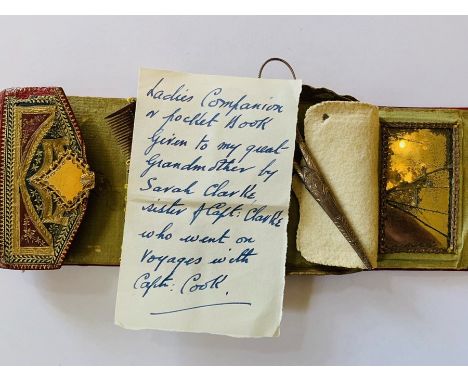 Ladies Companion
& pocket Book
Given to my great
Grandmother by
Sarah Clarke
sister of Capt: Clarke
who went on
Voyages with
Capt: Cook.